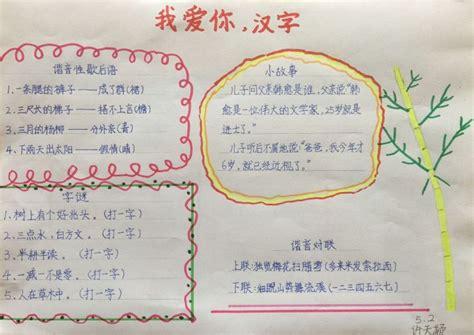 我爱你,汉字
谐音性歇后语
1.一条腿的裤子——成了群(裙)
2.三尺长的梯子——搭不上言(檐)
3.三月的杨柳——分外亲(青)
4.下雨天出太阳——假情(晴)
字谜
1.树上有个好兆头。(打一字)
2.三点水,白方文。(打一字)
3.半耕半读。(打一字)
4.一减一不是零。(打一字)
5.人在草木中。(打一字)
小故事
儿子问父亲韩愈是谁,父亲说"韩
愈是一位伟大的文学家,25岁就是
进士了。"
儿子听后不屑地说"爸爸,我今年才
6岁,就已经近视了。"
谐音对联
上联:独览梅花扫腊雪(多来米发索拉西)
下联:细睨山势舞流溪(一二三四五六七)
5.2